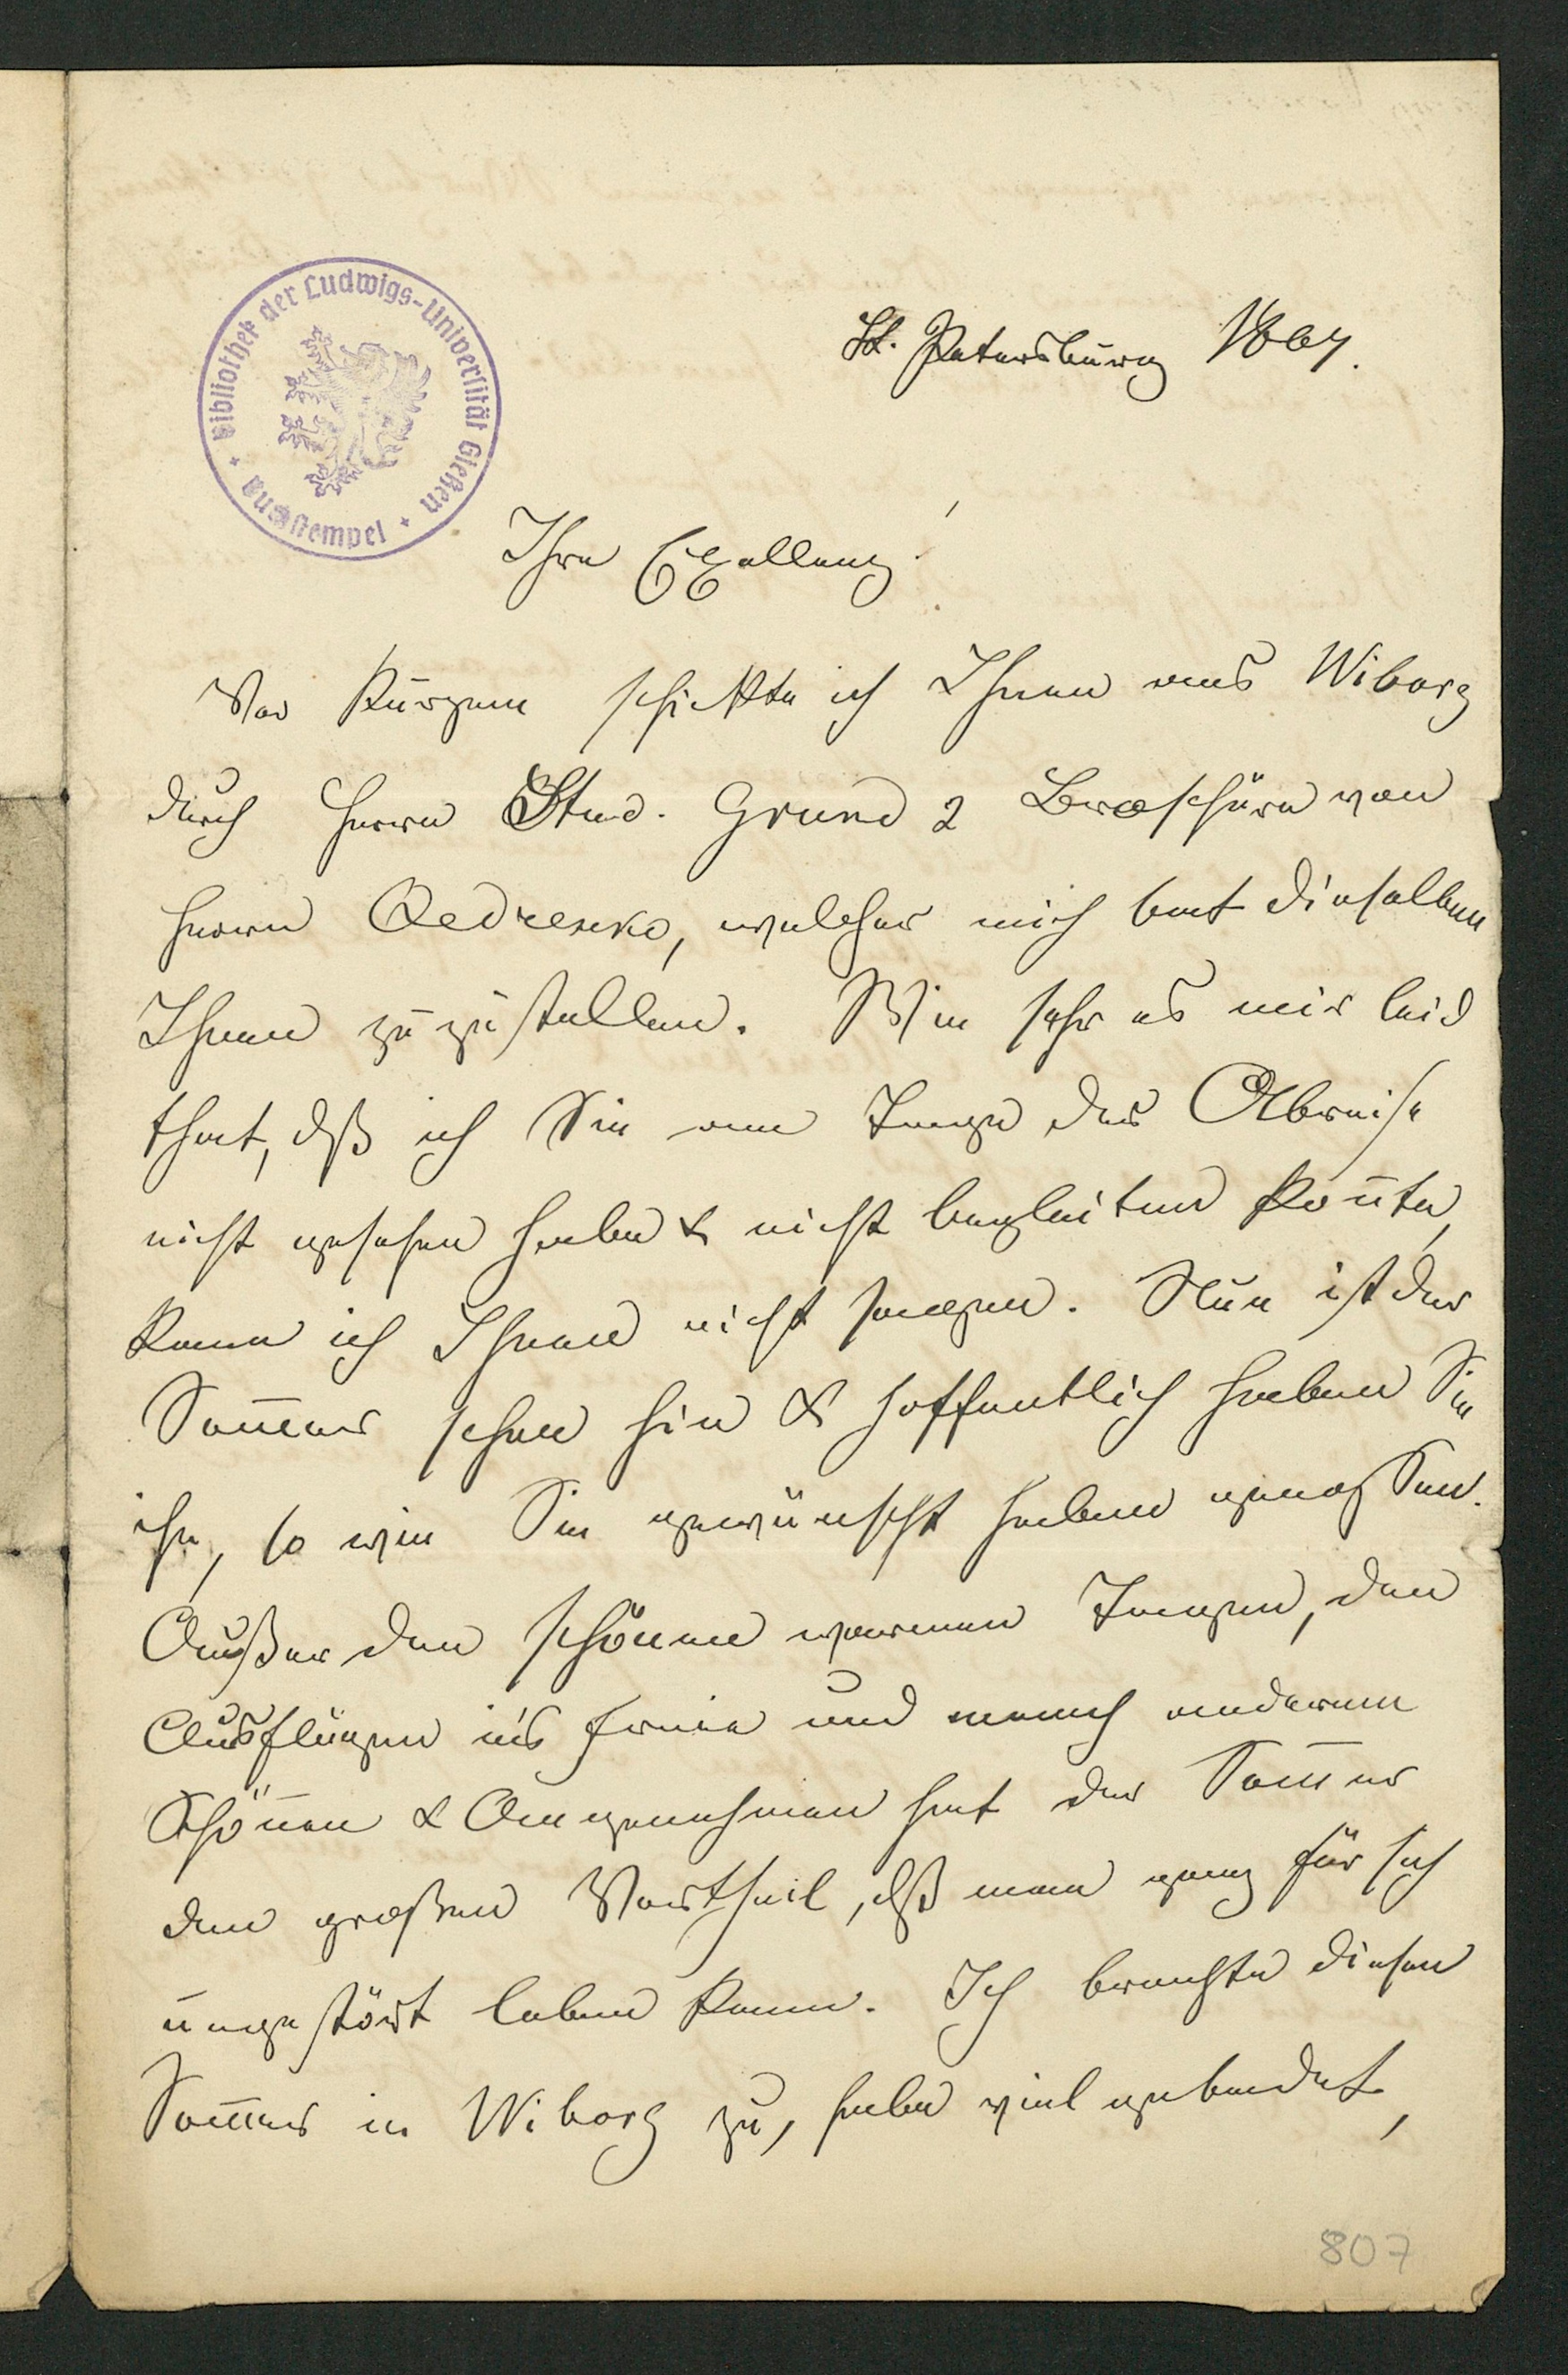 Bibliothek der Ludwigs-Universität Gießen
Buchstempel
St. Petersburg 1867.
Ihre Exellenz!
Vor Kurzem schickte ich Ihnen aus Wiborg
durch Herrn Stud. Grund 2 Broschüre von
Herrn, welcher mich bat dieselben
Ihnen zuzustellen. Wie sehr es mir leid
that, dß ich Sie am Tage der Abreise
nicht gesehen habe & nicht begleiten kon̄te,
kann ich Ihnen nicht sagen. Nun ist der
Som̄er schon hin & hoffentlich haben Sie
ihn, so wie Sie gewünscht haben genossen.
Außer den schönen warmen Tagen, den
Ausflügen in's Freie und manch anderem
Schönen & Angenehmen hat der Som̄er
den großen Vortheil, dß man ganz für sich
ungestört leben kann. Ich brachte diesen
Som̄er in Wiborg zu, habe viel gebadet,
807